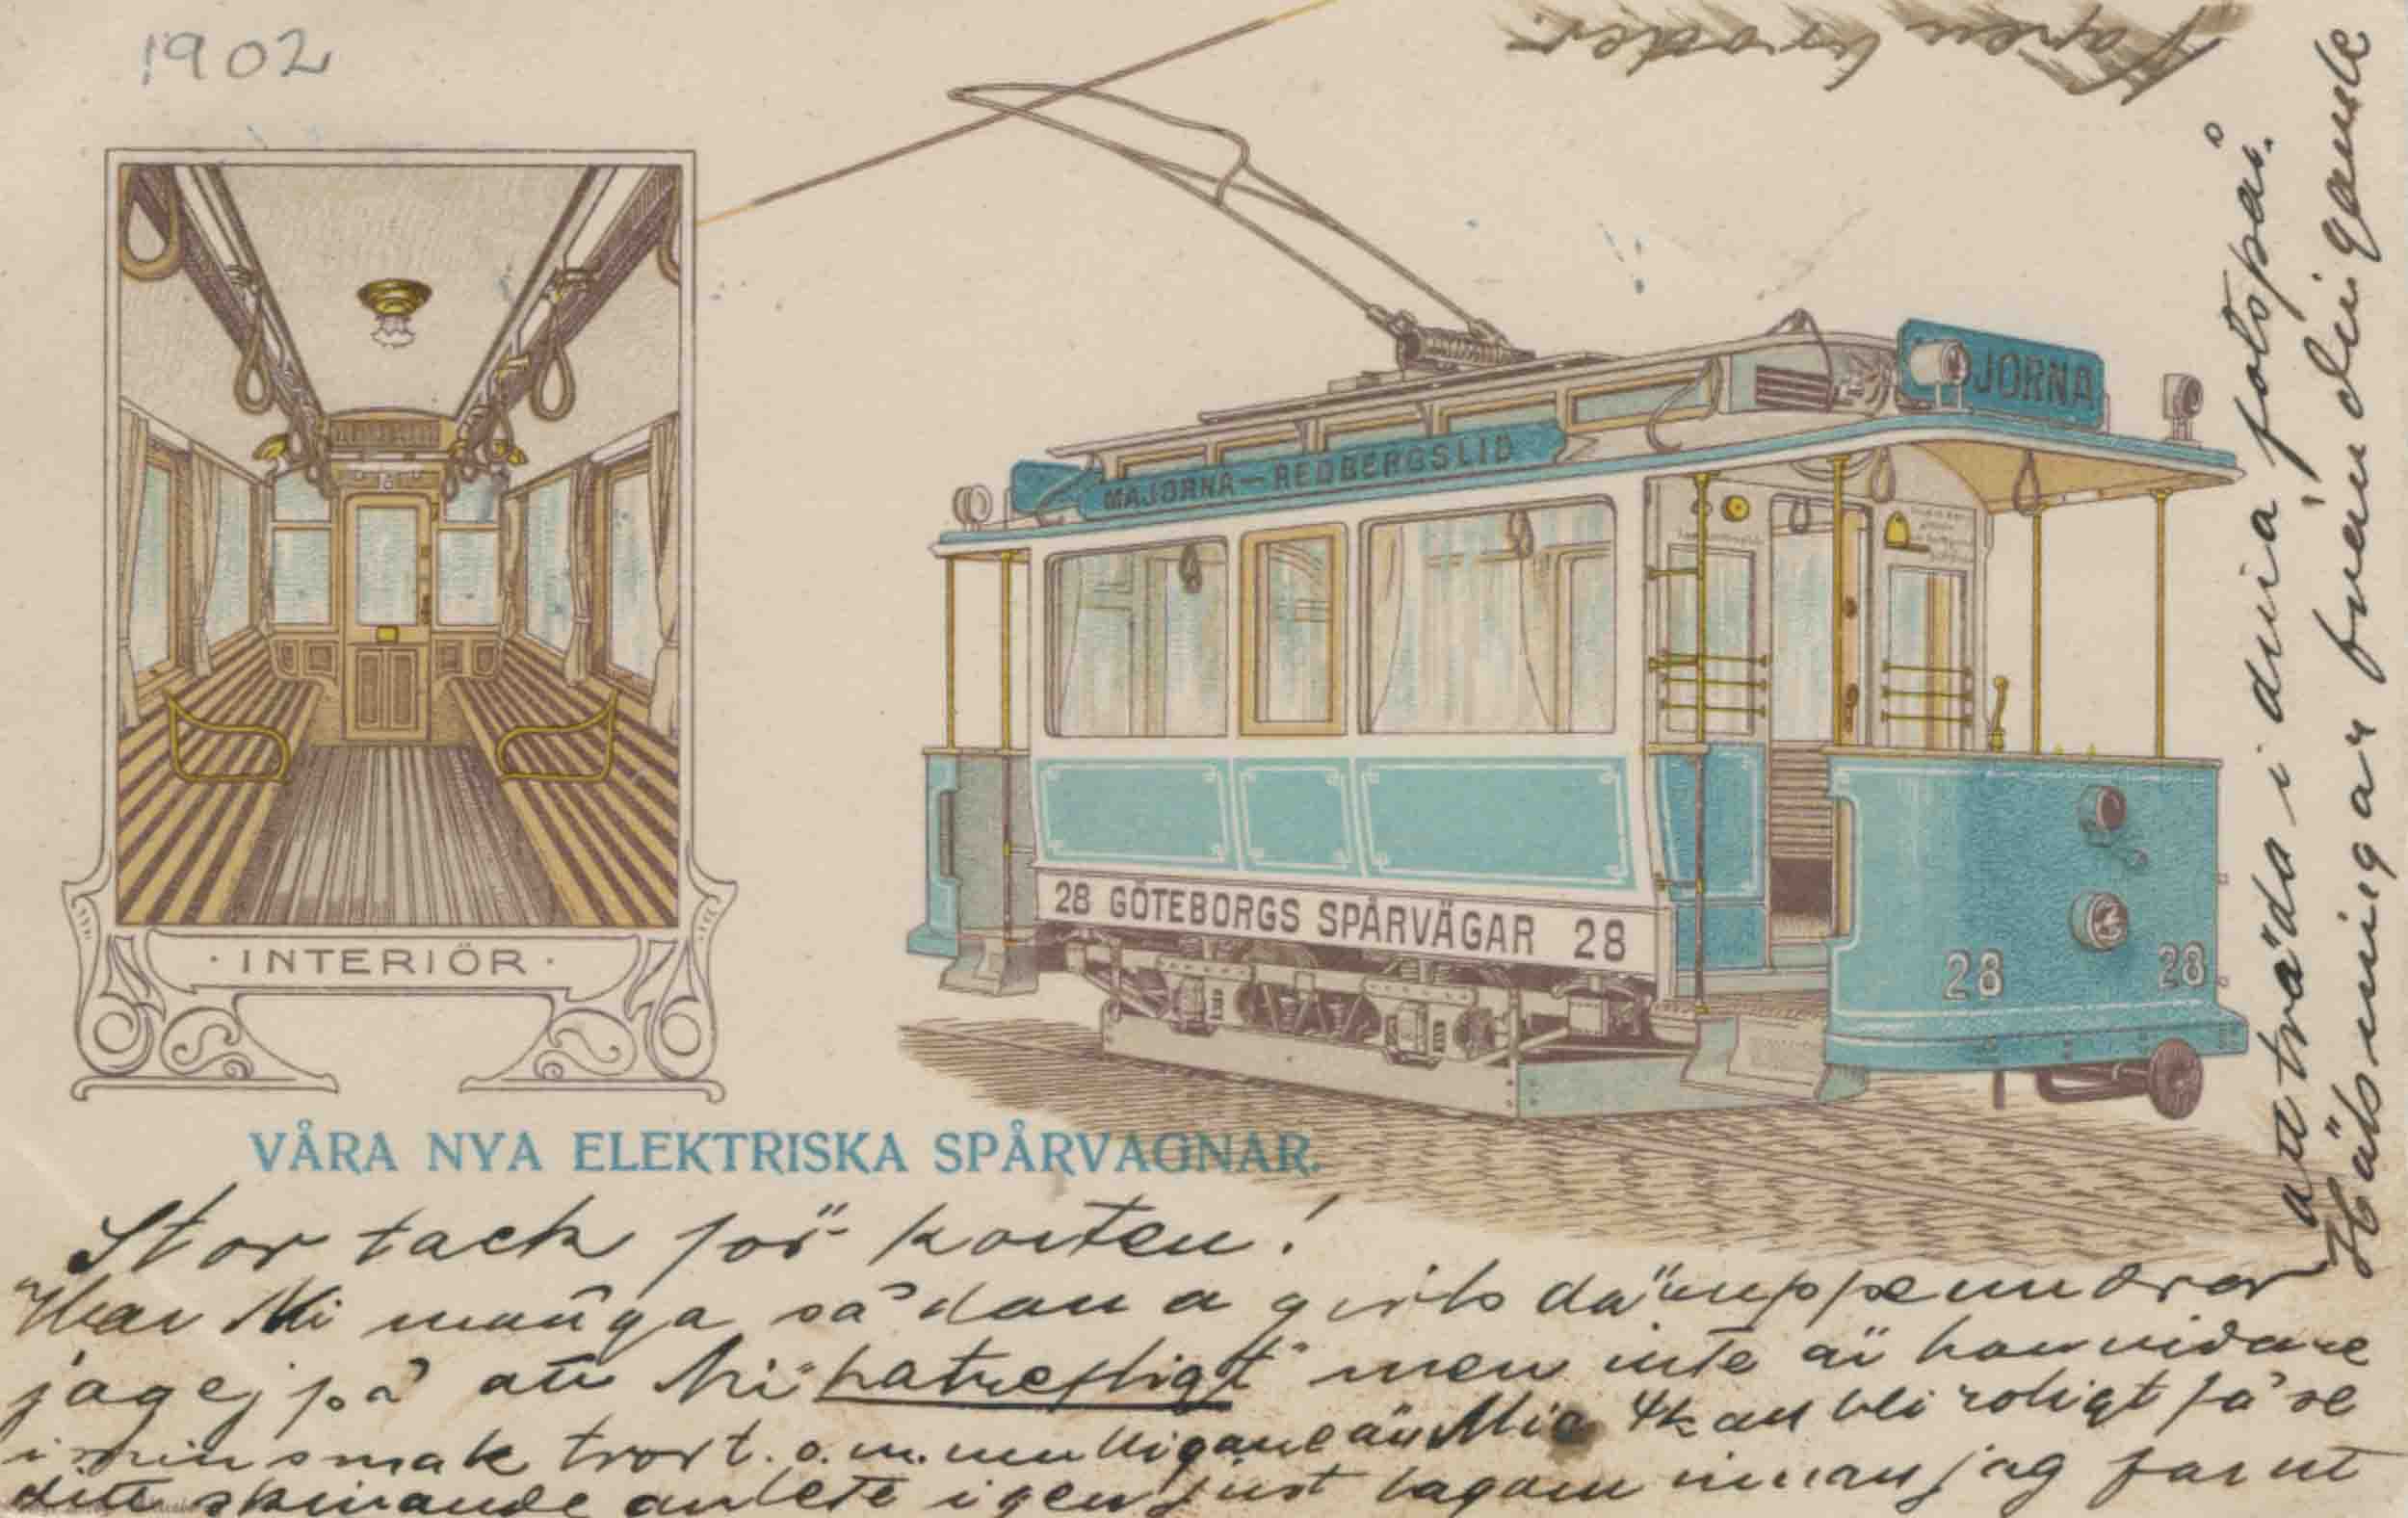 1902
JORNA
MAJORNA — REDBERGSLID
28 GÖTEBORGS SPÅRVÄGAR 28
28 28
· INTERIÖR ·
VÅRA NYA ELEKTRISKA SPÅRVAGNAR.
Stor tack för korten!
Har Ni många sådana girls då uppenndrar
jag ej på att Ni "hatrefligt" men inte är hon vidare
i min smak trort. o. m. än Mia kan bli roligt få se
ditt skinande anlete igen just lagom innan jag far ut
att träda i dina fotspår.
Hälsningar från din gamle